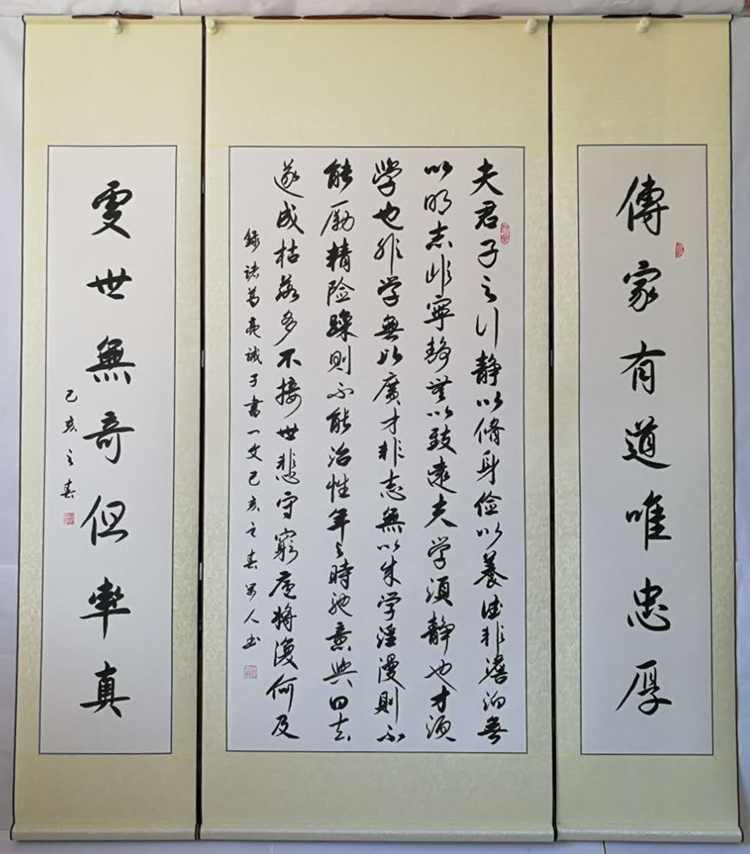 傳家有道唯忠厚
夫君子之行静以脩身俭以養德非澹泊無
以明志非寧静無以致遠夫学須静也才須
学也非学無以廣才非志無以成学淫漫則不
能勵精险躁則不能冶性年与時馳意與日去
遂成枯落多不接世悲守窮廬将復何及
録諸葛亮誡子書一文己亥之春人书
處世無奇但率真
己亥之春